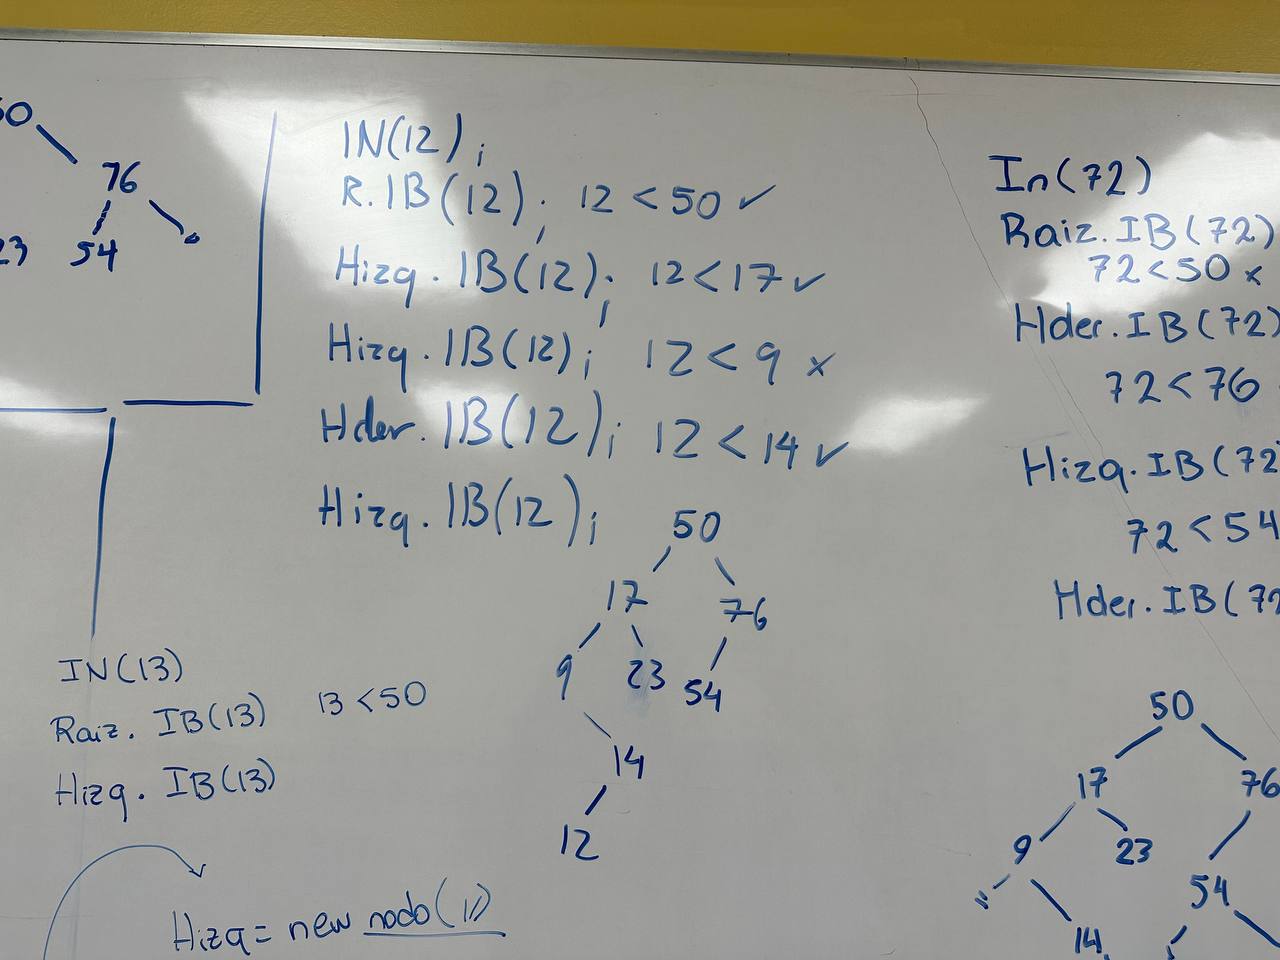 50
76
23 54
IN(12);
R.IB(12); 12 < 50 ✓
Hizq.IB(12); 12 < 17 ✓
Hizq.IB(12); 12 < 9 x
Hder.IB(12); 12 < 14 ✓
Hizq.IB(12);
50
17 76
9 23 54
14
12
IN(13)
Raiz. IB(13) 13 < 50
Hizq. IB(13)
Hizq = new nodo( )
In(72)
Raiz.IB(72)
72 < 50 x
Hder.IB(72)
72 < 76
Hizq.IB(72)
72 < 54
Hder.IB(72
50
17 76
9 23 54
14